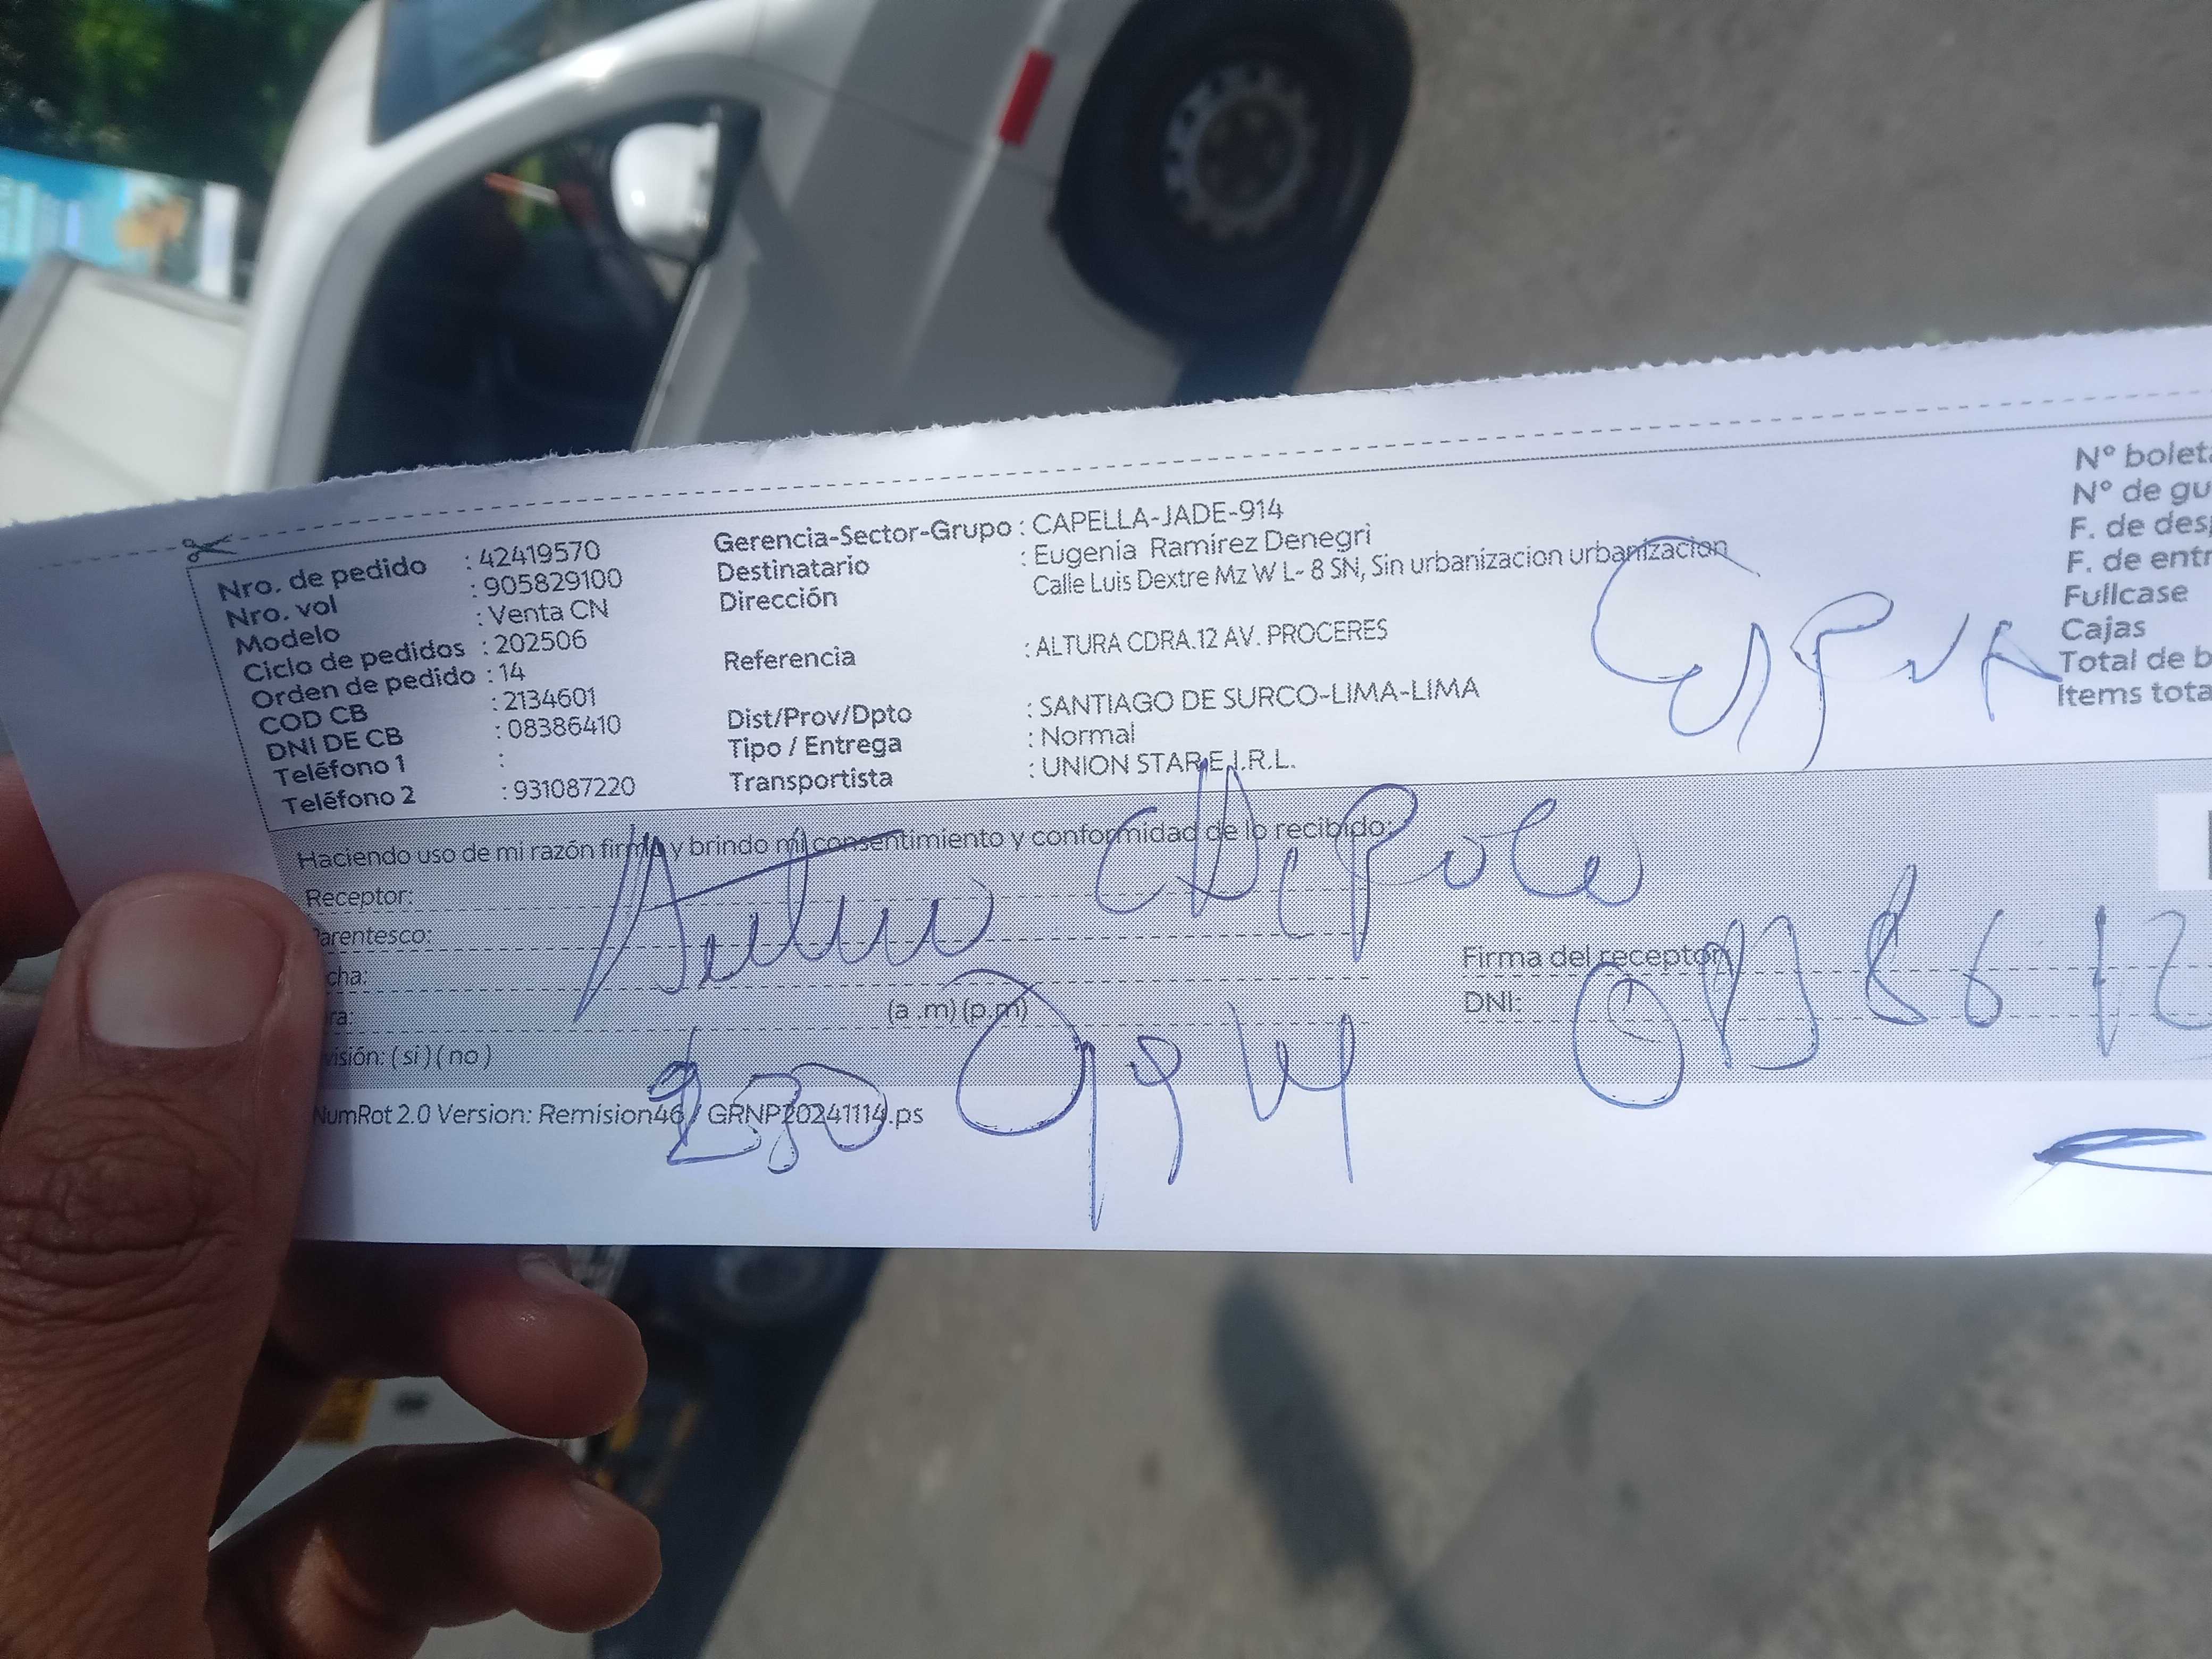 Nro. de pedido : 42419570
Nro. vol : 905829100
Modelo : Venta CN
Ciclo de pedidos : 202506
Orden de pedido : 14
COD CB : 2134601
DNI DE CB : 08386410
Teléfono 1 :
Teléfono 2 : 931087220
Gerencia-Sector-Grupo : CAPELLA-JADE-914
Destinatario : Eugenia Ramirez Denegri
Dirección : Calle Luis Dextre Mz W L- 8 SN, Sin urbanizacion urbanizacion
Referencia : ALTURA CDRA.12 AV. PROCERES
Dist/Prov/Dpto : SANTIAGO DE SURCO-LIMA-LIMA
Tipo / Entrega : Normal
Transportista : UNION STAR E.I.R.L.
Nº
Nº de
F. de
F. de
Fullcase
Cajas
Total de
Items
Haciendo uso de mi razón firmo y brindo mi consentimiento y conformidad de lo recibido:
Receptor:
arentesco:
cha:
ra: (a .m) (p.m)
visión: ( si ) ( no )
Firma del receptor
DNI:
NumRot 2.0 Version: Remision46 / GRNP20241114.ps